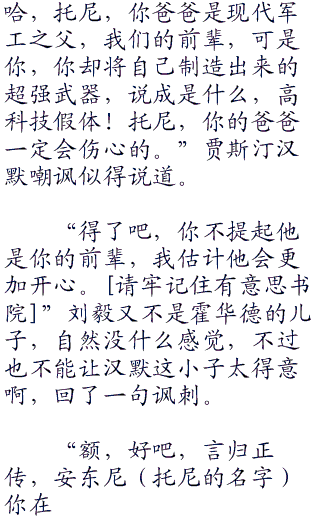 哈，托尼，你爸爸是现代军
工之父，我们的前辈，可是
你，你却将自己制造出来的
超强武器，说成是什么，高
科技假体！托尼，你的爸爸
一定会伤心的。”贾斯汀汉
默嘲讽似得说道。
“得了吧，你不提起他
是你的前辈，我估计他会更
加开心。[请牢记住有意思书
院]”刘毅又不是霍华德的儿
子，自然没什么感觉，不过
也不能让汉默这小子太得意
啊，回了一句讽刺。
“额，好吧，言归正
传，安东尼（托尼的名字）
你在